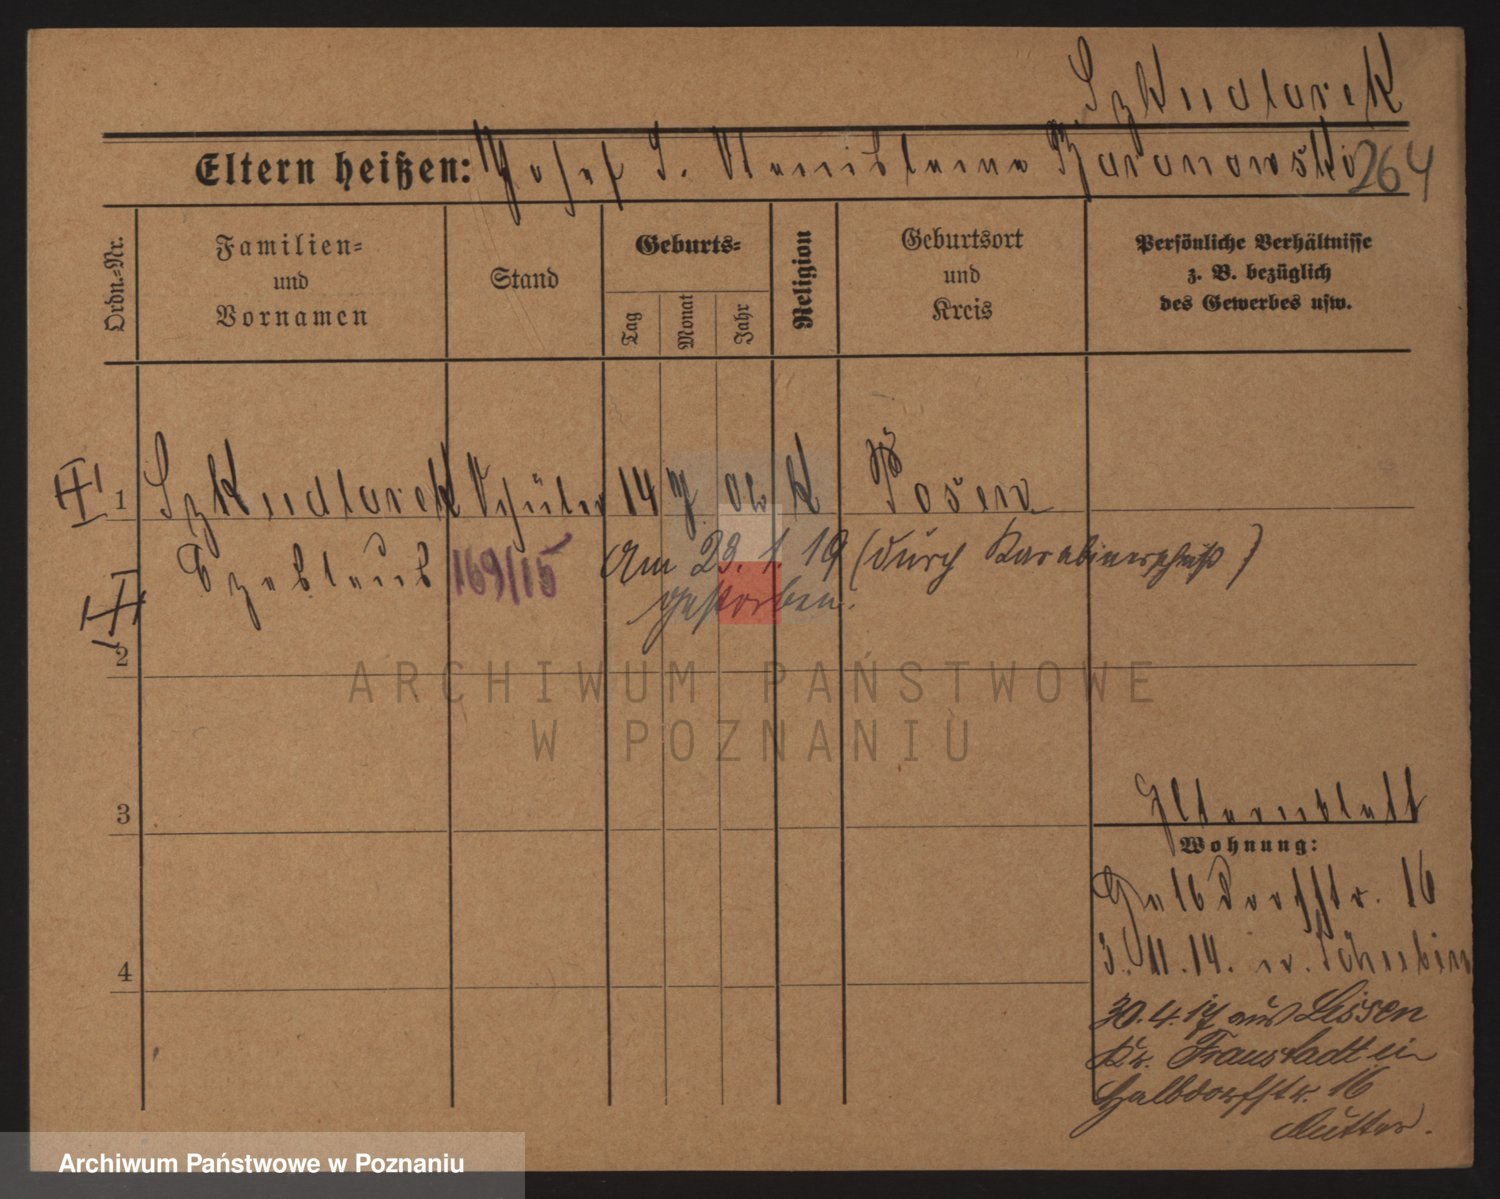 Szkudlarek
Eltern heißen: Josef S. Stanislawa Baranowski 264
Ordn.-Nr.
Familien-
und
Vornamen
Stand
Geburts-
Tag
Monat
Jahr
Religion
Geburtsort
und
Kreis
Persönliche Verhältnisse
z. B. bezüglich
des Gewerbes usw.
1 Szkudlarek Schüler 14 7. 02 k Posen
Czeslaus 169/15 Am 23. 1. 19 (durch Karabinerschuß)
gestorben.
2
ARCHIWUM PAŃSTWOWE
W POZNANIU
3
Elternblatt
Wohnung:
Halbdorfstr. 16
4
3. 11. 14. n. Schubin
30.4.17 aus Lissen
Kr. Fraustadt ein
Halbdorfstr. 16
Mutter.
Archiwum Państwowe w Poznaniu